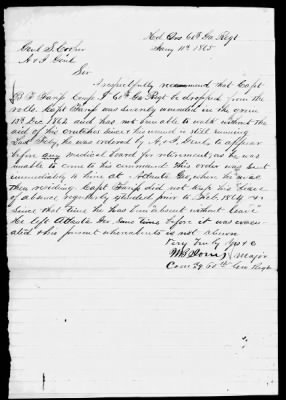 Hed Qrs 60th Ga Regt
Jany 11th 1865
Genl S. Cooper
A & I Genl
Sir
I respectfully recommend that Capt
B F Farip Comp I 60th Ga Regt be dropped from the
rolls. Capt Farip was severely wounded in the arm
13th Dec. 1862 and has not been able to walk without the
aid of his crutches since his wound is still running
Last Feby, he was ordered by A & I Genls to appear
before any medical board for retirement, as he was
unable to come to his command. This order was sent
immediately to him at Atlanta Ga, where he was
then residing. Capt Farip did not keep his leave
of absence regularly extended prior to Feb. 1864 &
since that time he has been "absent without leave"
He left Atlanta some time before it was evacu-
ated & his present whereabouts is not known
Very Truly Yours
W B Jones Major
Com'g 60th Ga Regt